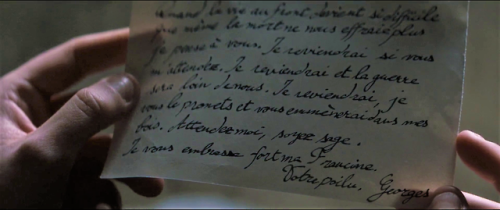 Quand la vie au front devient si difficile
que même la mort ne nous effraie plus
Je pense à vous. Je reviendrai si vous
m'attendez. Je reviendrai et la guerre
sera loin de nous. Je reviendrai, je
vous le promets et vous emmènerai dans mes
bois. Attendez moi, soyez sage.
Je vous embrasse fort ma Francine.
Votre poilu, Georges